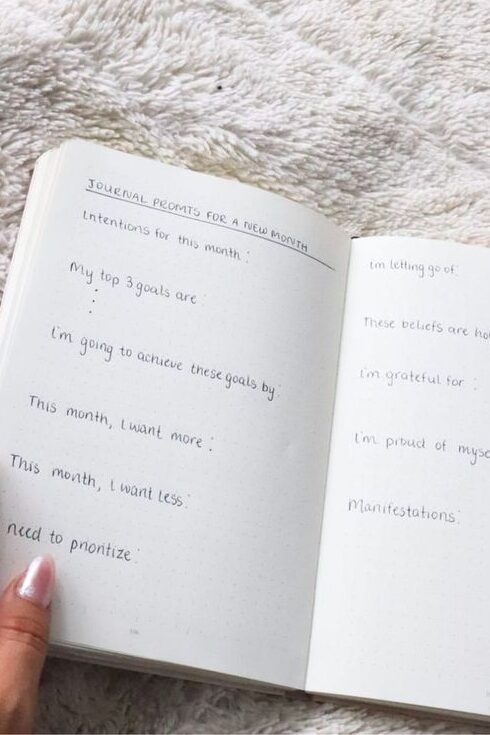 JOURNAL PROMTS FOR A NEW MONTH
Intentions for this month:
My top 3 goals are:
I'm going to achieve these goals by:
This month, I want more:
This month, I want less:
need to prioritize:
I'm letting go of:
These beliefs are
I'm grateful for:
I'm proud of
Manifestations: